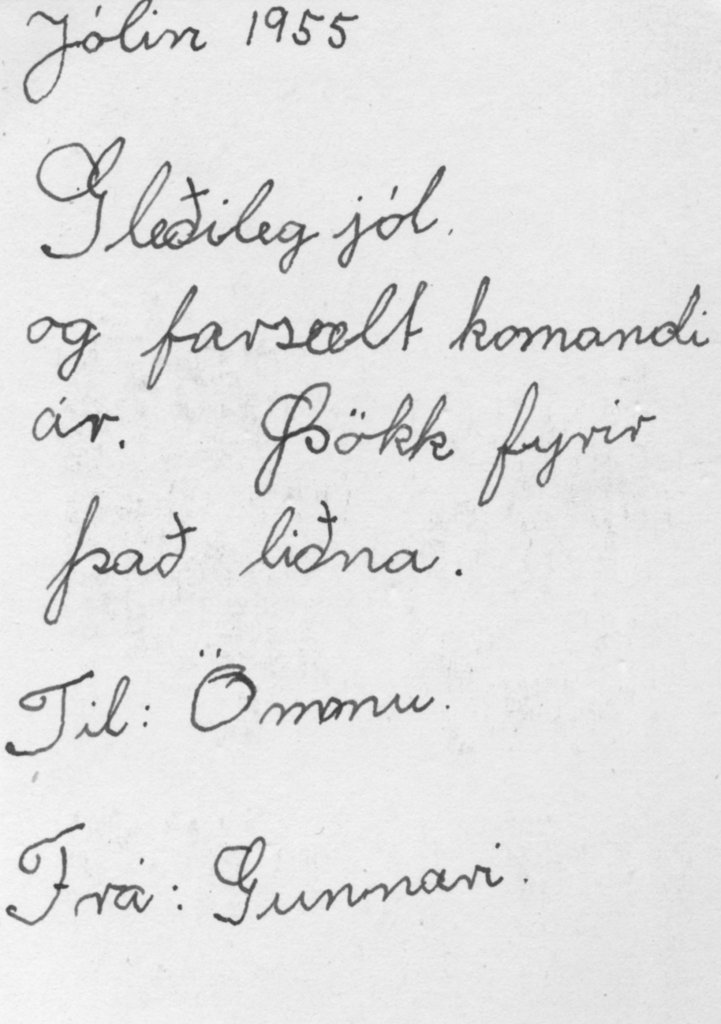 Jólin 1955
Gleðileg jól.
og farsælt komandi
ár. Þökk fyrir
það liðna.
Til: Ömmu.
Frá: Gunnari.